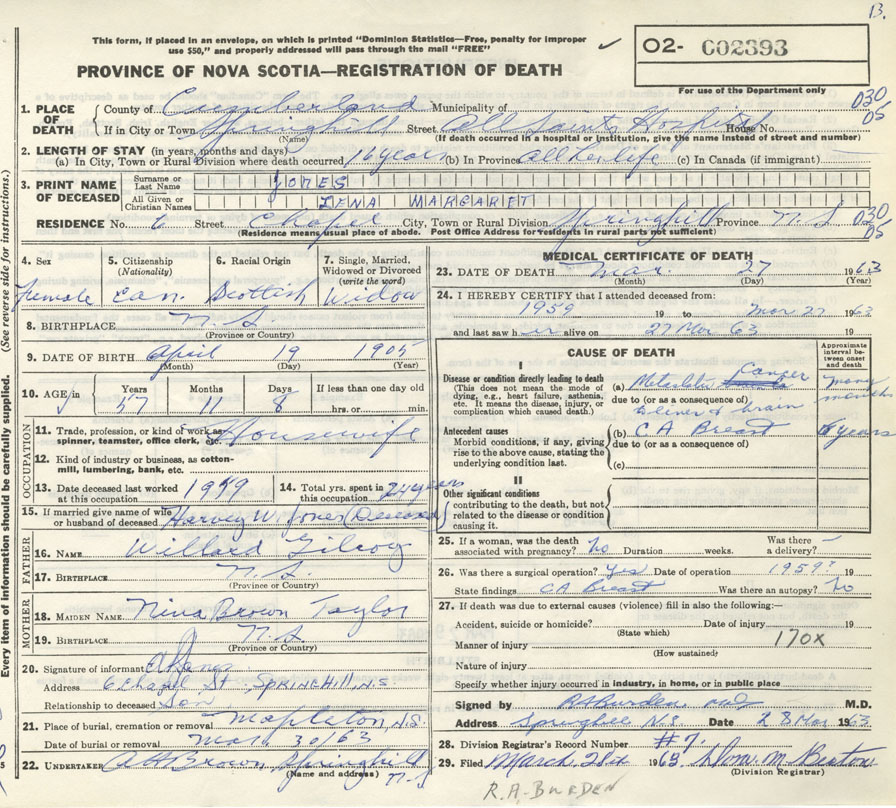 13.
This form, if placed in an envelope, on which is printed "Dominion Statistics—Free, penalty for improper
use $50," and properly addressed will pass through the mail "FREE"
✓
O2- C02393
PROVINCE OF NOVA SCOTIA—REGISTRATION OF DEATH
For use of the Department only
1. PLACE OF DEATH
County of Cumberland Municipality of
030
05
If in City or Town Springhill Street All Saints Hospital House No.
(Name) (If death occurred in a hospital or institution, give the name instead of street and number)
2. LENGTH OF STAY (in years, months and days)
(a) In City, Town or Rural Division where death occurred 16 years (b) In Province all her life (c) In Canada (if immigrant)
3. PRINT NAME OF DECEASED
Surname or Last Name JONES
All Given or Christian Names LENA MARGARET
RESIDENCE No. 6 Street Chapel City, Town or Rural Division Springhill Province N.S
030
05
(Residence means usual place of abode. Post Office Address for residents in rural parts not sufficient)
4. Sex
Female
5. Citizenship (Nationality)
Can.
6. Racial Origin
Scottish
7. Single, Married, Widowed or Divorced (write the word)
Widow
8. BIRTHPLACE N.S.
(Province or Country)
9. DATE OF BIRTH April 19 1905
(Month) (Day) (Year)
10. AGE in
Years 57
Months 11
Days 8
If less than one day old
hrs. or min.
OCCUPATION
11. Trade, profession, or kind of work as spinner, teamster, office clerk, etc. Housewife
12. Kind of industry or business, as cotton-mill, lumbering, bank, etc.
13. Date deceased last worked at this occupation 1959
14. Total yrs. spent in this occupation 24 years
15. If married give name of wife or husband of deceased Harvey W. Jones (Deceased)
FATHER
16. NAME Willard Gilroy
17. BIRTHPLACE N.S.
(Province or Country)
MOTHER
18. MAIDEN NAME Nina Brown Taylor
19. BIRTHPLACE N.S.
(Province or Country)
20. Signature of informant
Address 6 Chapel St, SPRINGHILL, N.S.
Relationship to deceased Son
21. Place of burial, cremation or removal Mapleton, N.S.
Date of burial or removal Mar. 30/63
22. UNDERTAKER A H Brown Springhill N.S
(Name and address)
MEDICAL CERTIFICATE OF DEATH
23. DATE OF DEATH Mar. 27 1963
(Month) (Day) (Year)
24. I HEREBY CERTIFY that I attended deceased from:
1959 19 to Mar 27 1963
and last saw her alive on 27 Mar 63 19
CAUSE OF DEATH
Approximate interval between onset and death
I
Disease or condition directly leading to death
(This does not mean the mode of dying, e.g., heart failure, asthenia, etc. It means the disease, injury, or complication which caused death.)
(a) Metastatic Cancer
many months
due to (or as a consequence of)
Antecedent causes
Morbid conditions, if any, giving rise to the above cause, stating the underlying condition last.
(b) CA Breast
years
due to (or as a consequence of)
(c)
II
Other significant conditions contributing to the death, but not related to the disease or condition causing it.
25. If a woman, was the death associated with pregnancy? No Duration weeks. Was there a delivery? –
26. Was there a surgical operation? Yes Date of operation 1959? 19
State findings CA Breast Was there an autopsy? No
27. If death was due to external causes (violence) fill in also the following:—
Accident, suicide or homicide? Date of injury 19
(State which)
170X
Manner of injury
(How sustained)
Nature of injury
Specify whether injury occurred in industry, in home, or in public place
Signed by RABurden MD M.D.
Address Springhill N.S Date 28 Mar 1963
28. Division Registrar's Record Number #7.
29. Filed March 28th 1963.
(Division Registrar)
R.A-BURDEN
Every item of information should be carefully supplied. (See reverse side for instructions.)